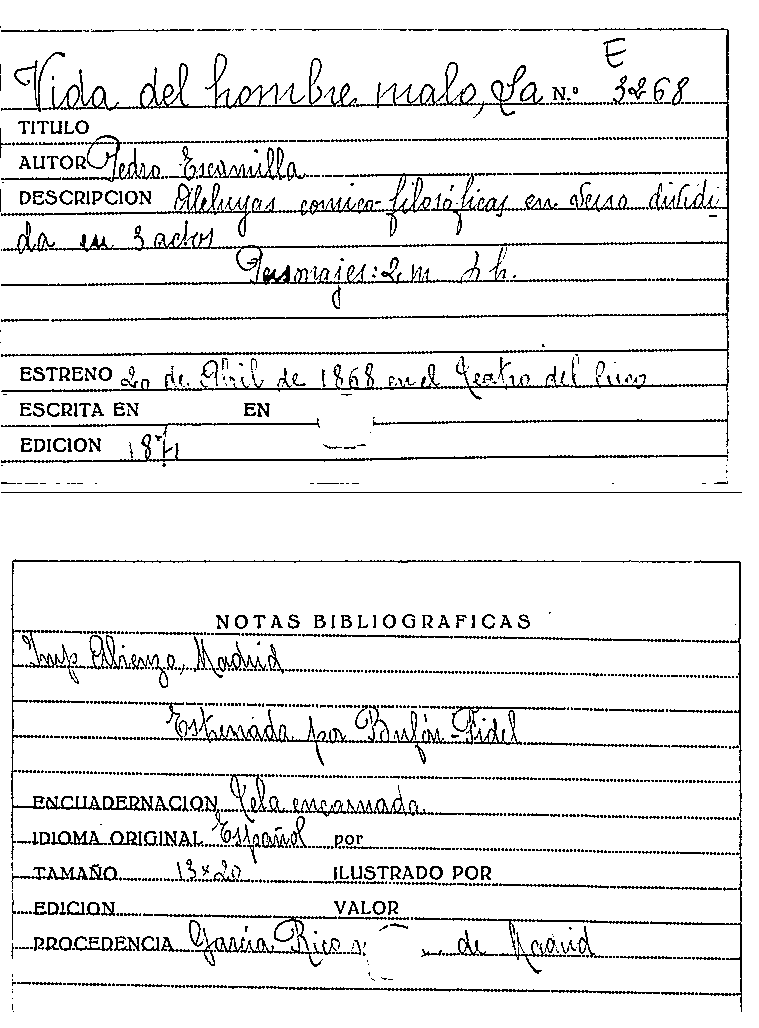 E
Vida del hombre malo, La N.º 3268
TITULO
AUTOR Pedro Escamilla
DESCRIPCION Aleluyas comico-filosóficas en verso dividi
da en 3 actos
Personajes: 2 m h.
ESTRENO 20 de Abril de 1868 en el Teatro del Circo
ESCRITA EN EN
EDICION 1871
NOTAS BIBLIOGRAFICAS
Imp Alienzo, Madrid
Estrenada por Bufón-Fidel
ENCUADERNACION Tela encarnada
IDIOMA ORIGINAL Español por
TAMAÑO 13×20 ILUSTRADO POR
EDICION VALOR
PROCEDENCIA García Rico y de Madrid